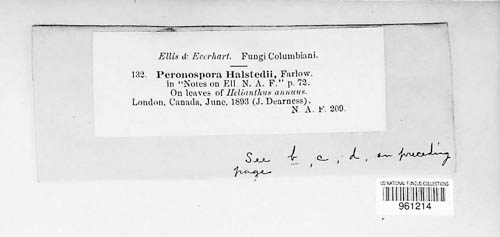 Ellis & Everhart. Fungi Columbiani.
132. Peronospora Halstedii, Farlow.
in "Notes on Ell N. A. F." p. 72.
On leaves of Helianthus annuus.
London, Canada, June, 1893 (J. Dearness).
N. A. F. 209.
See b, c, d, on preceding
pages
US NATIONAL FUNGUS COLLECTIONS
961214